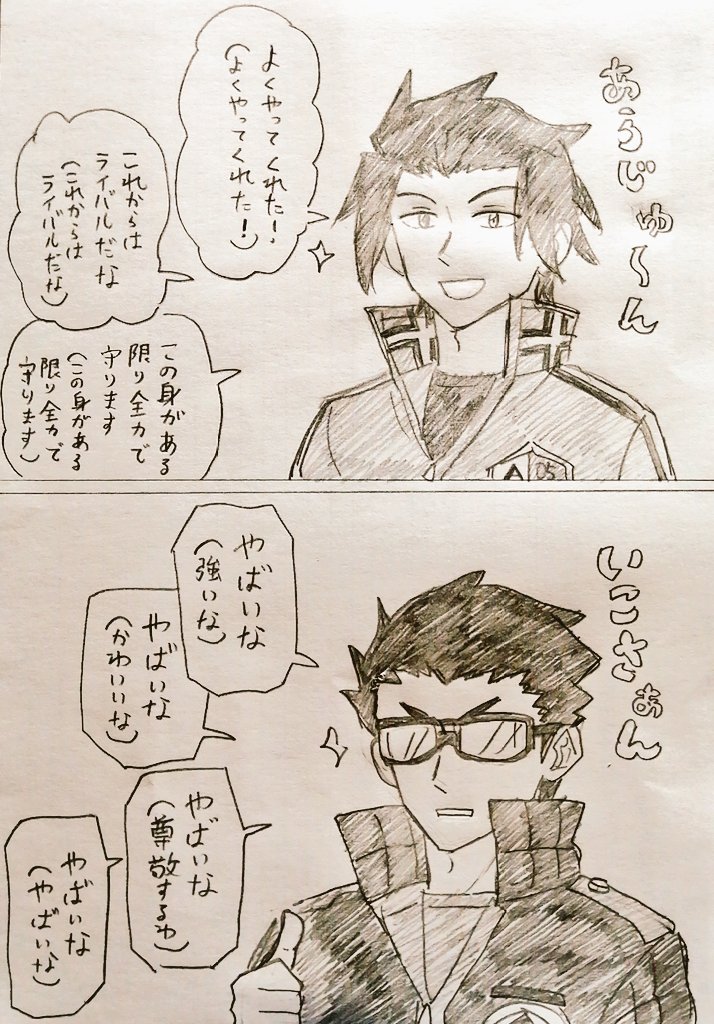 あらじゅ～ん
よくやってくれた！
（よくやってくれた！）
これからは
ライバルだな
（これからは
ライバルだな）
この身がある
限り全力で
守ります
（この身がある
限り全力で
守ります）
A 05
いこさぁん
やばいな
（強いな）
やばいな
（かわいいな）
やばいな
（尊敬するわ）
やばいな
（やばいな）